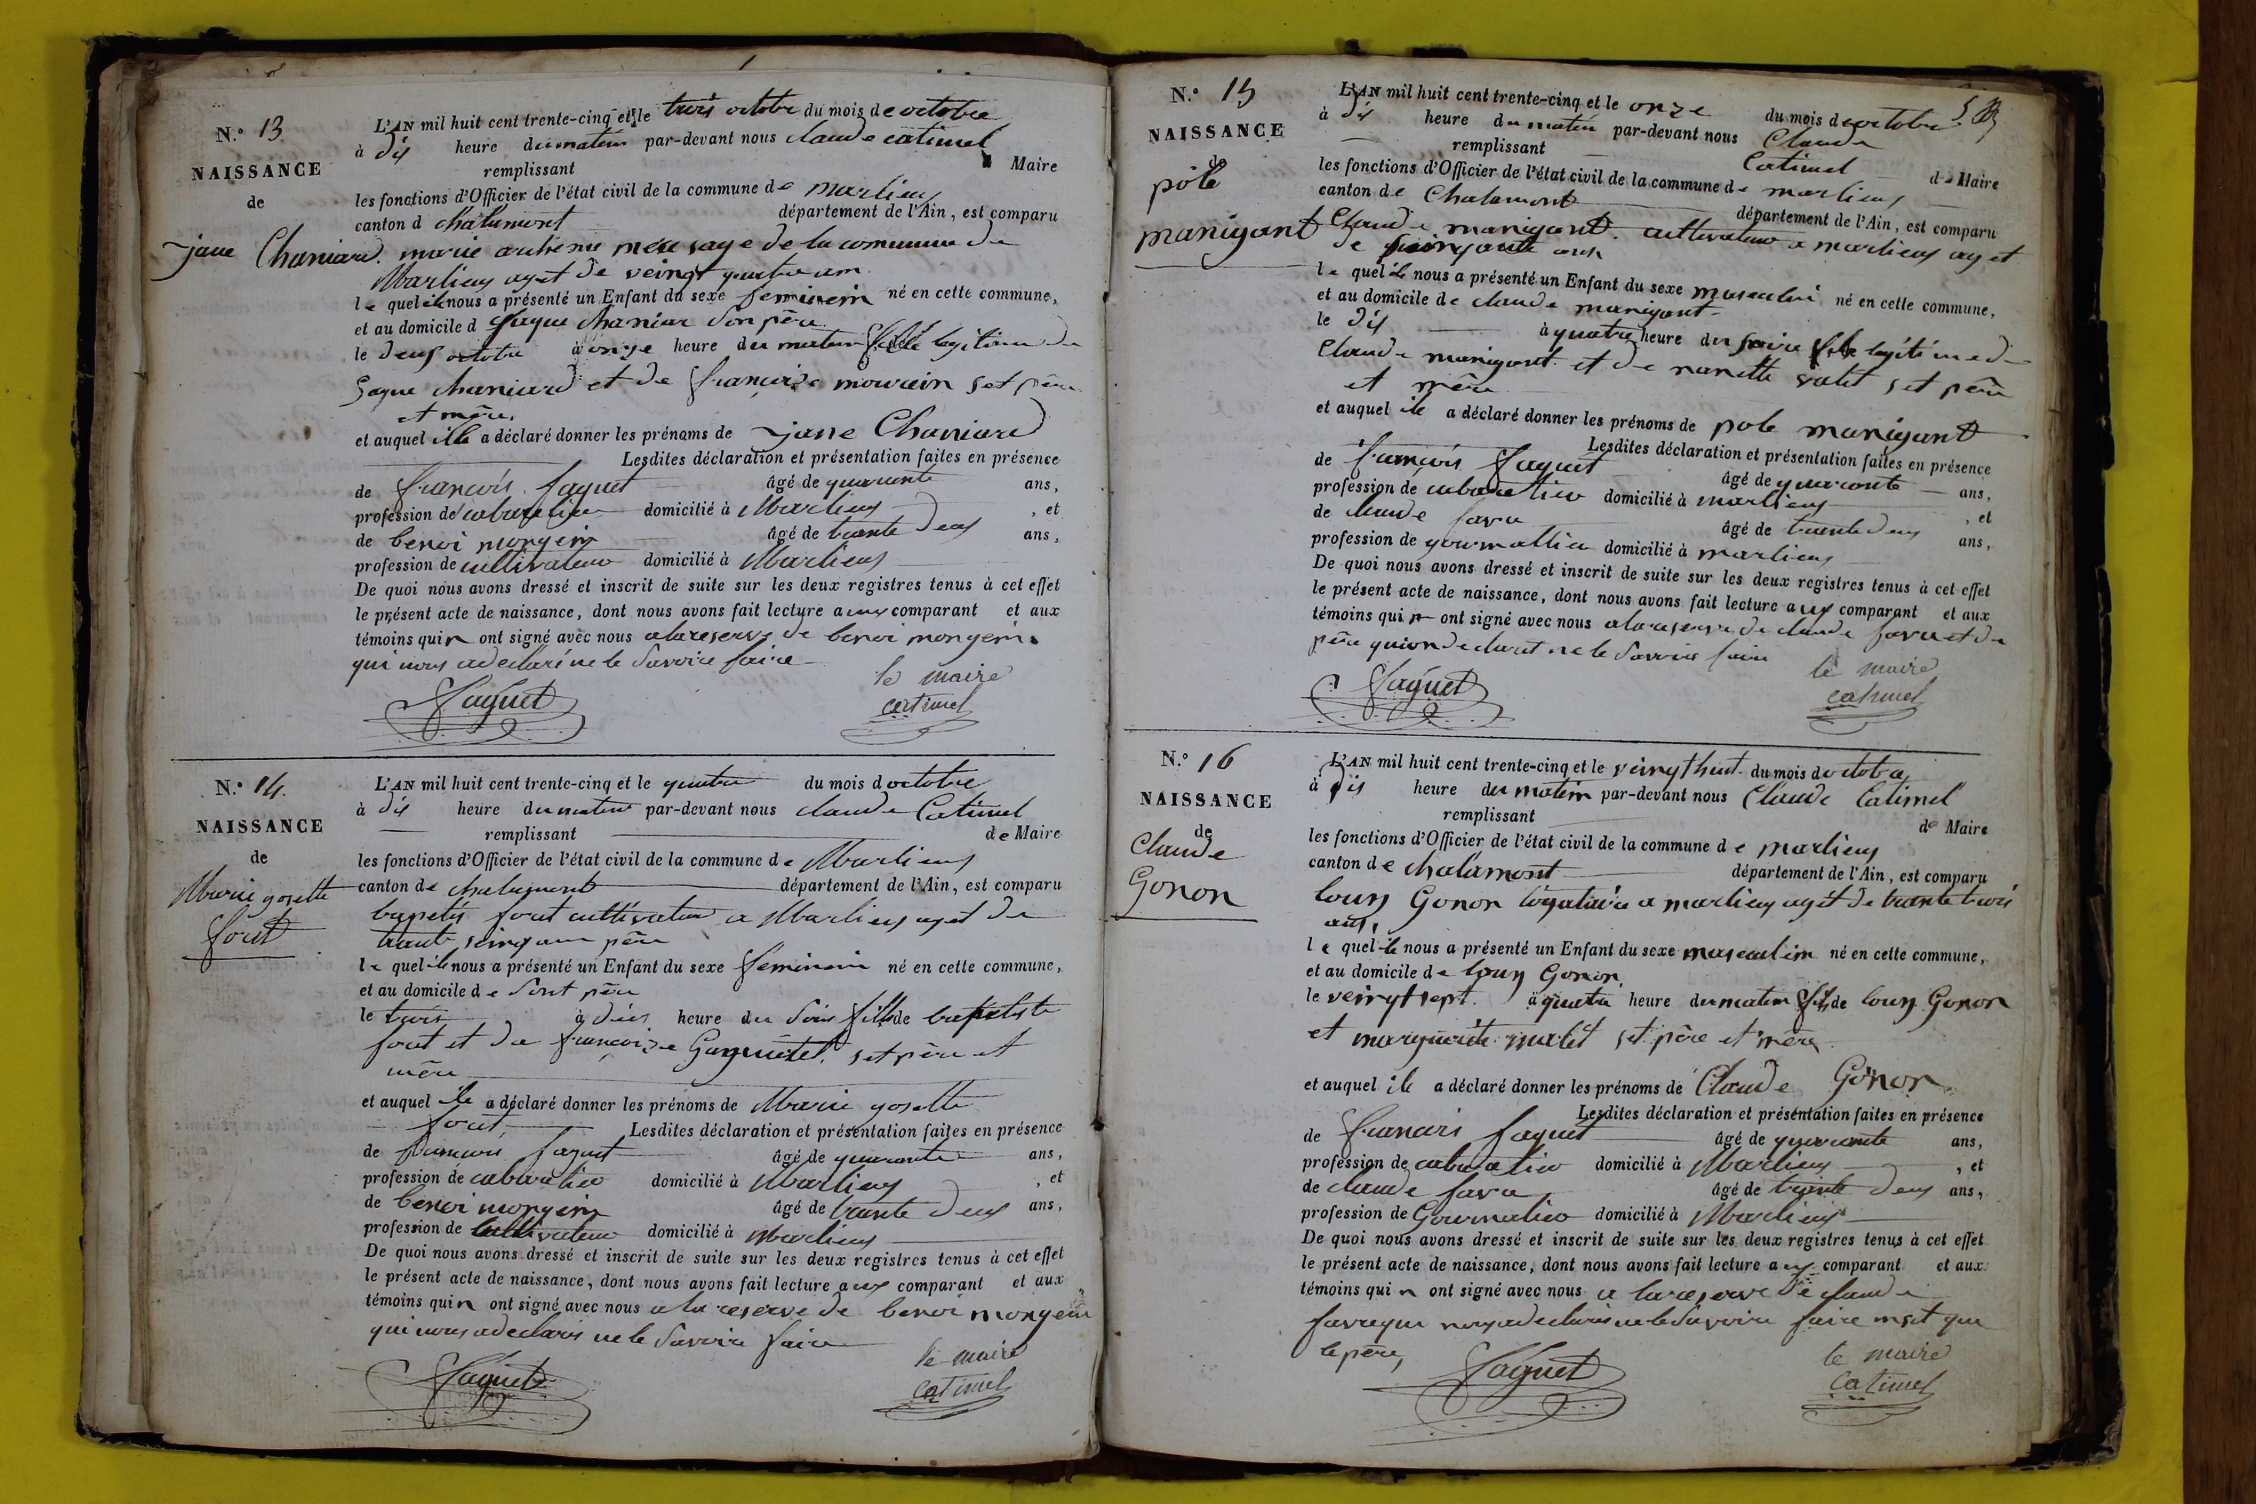 N.º 13
NAISSANCE
de
jane Chaniard
L'AN mil huit cent trente-cinq et le trois octobre du mois de octobre
à dis heure du matin par-devant nous claude catimel
remplissant Maire
les fonctions d'Officier de l'état civil de la commune de marlieu
canton d chalamont département de l'Ain, est comparu
marie saye de la commune de
Marlieux aget de veingt quatre an
le quel il nous a présenté un Enfant du sexe feminein né en cette commune,
et au domicile d jaque chaniar son père
le deus octobre à onze heure du matin fille legitime de
jaque chaniard et de françoise mourein set père
et mère.
et auquel ille a déclaré donner les prénoms de jane Chaniard
Lesdites déclaration et présentation faites en présence
de françois faquet âgé de quarente ans,
profession de cabaretier domicilié à Marlieux , et
de benoi mongein âgé de trante deus ans,
profession de cultivateur domicilié à Marlieux
De quoi nous avons dressé et inscrit de suite sur les deux registres tenus à cet effet
le présent acte de naissance, dont nous avons fait lecture aux comparant et aux
témoins qui n ont signé avec nous a la reserve de benoi mongein
qui nous a declaré ne le savoire faire
le maire
faquet catimel
N.º 14.
NAISSANCE
de
Marie gosette
fout
L'AN mil huit cent trente-cinq et le quatre du mois d octobre
à dis heure du matin par-devant nous claude Catimel
remplissant de Maire
les fonctions d'Officier de l'état civil de la commune de Marlieux
canton de chalamont département de l'Ain, est comparu
bapetis fout cultivateur a Marlieux aget de
trante seinq an père
le quel il nous a présenté un Enfant du sexe feminein né en cette commune,
et au domicile de sont père
le trois à dies heure du soir fille de bapetiste
fout et de françoise Guquetel set père et
mère
et auquel ile a déclaré donner les prénoms de Marie gosette
fout Lesdites déclaration et présentation faites en présence
de françois faquet âgé de quarante ans,
profession de cabaretier domicilié à Marlieux , et
de benoi mongein âgé de trante deus ans,
profession de cultivateur domicilié à Marlieux
De quoi nous avons dressé et inscrit de suite sur les deux registres tenus à cet effet
le présent acte de naissance, dont nous avons fait lecture aux comparant et aux
témoins qui n ont signé avec nous a la reserve de benoi mongein
qui nous a declaris ne le savoire faire
le maire
faquet catimel
N.º 15
NAISSANCE
de
pole
manigant
L'AN mil huit cent trente-cinq et le onze du mois d octobre
à dis heure du matin par-devant nous Claude
remplissant Catimel de Maire
les fonctions d'Officier de l'état civil de la commune de marlieux
canton de Chalamont département de l'Ain, est comparu
Claude manigant cultivateur a marlieux aget
de seinqante ans
le quel il nous a présenté un Enfant du sexe masculin né en cette commune,
et au domicile de claude manigant
le dis à quatre heure du soire fils legitime de
claude manigant et de nanette valet set père
et mère
et auquel ile a déclaré donner les prénoms de pole manigant
Lesdites déclaration et présentation faites en présence
de françois faquet âgé de quarante ans,
profession de cabaretier domicilié à marlieux , et
de claude favre âgé de trante deus ans,
profession de gournallier domicilié à marlieux
De quoi nous avons dressé et inscrit de suite sur les deux registres tenus à cet effet
le présent acte de naissance, dont nous avons fait lecture aux comparant et aux
témoins qui n ont signé avec nous a la reserve de claude favre et du
père qui on declaret ne le savoir faire
le maire
faquet catimel
N.º 16
NAISSANCE
de
Claude
Gonon
L'AN mil huit cent trente-cinq et le veingt huit du mois d octobre
à dis heure du matin par-devant nous Claude Catimel
remplissant de Maire
les fonctions d'Officier de l'état civil de la commune de marlieux
canton de chalamont département de l'Ain, est comparu
louis Gonon a marlieux aget de trante trois
ans,
le quel il nous a présenté un Enfant du sexe masculin né en cette commune,
et au domicile de louis Gonon
le veingt sept. à quatre heure du matin fils de louis Gonon
et marguerite malet set père et mère
et auquel ile a déclaré donner les prénoms de Claude Gonon
Lesdites déclaration et présentation faites en présence
de françois faquet âgé de quarante ans,
profession de cabaretier domicilié à Marlieux , et
de claude favre âgé de trante deus ans,
profession de Gournalier domicilié à Marlieux
De quoi nous avons dressé et inscrit de suite sur les deux registres tenus à cet effet
le présent acte de naissance, dont nous avons fait lecture aux comparant et aux
témoins qui n ont signé avec nous a la reserve de claude
favre qui nous a declaris ne le savoire faire que
le père,
le maire
faquet catimel